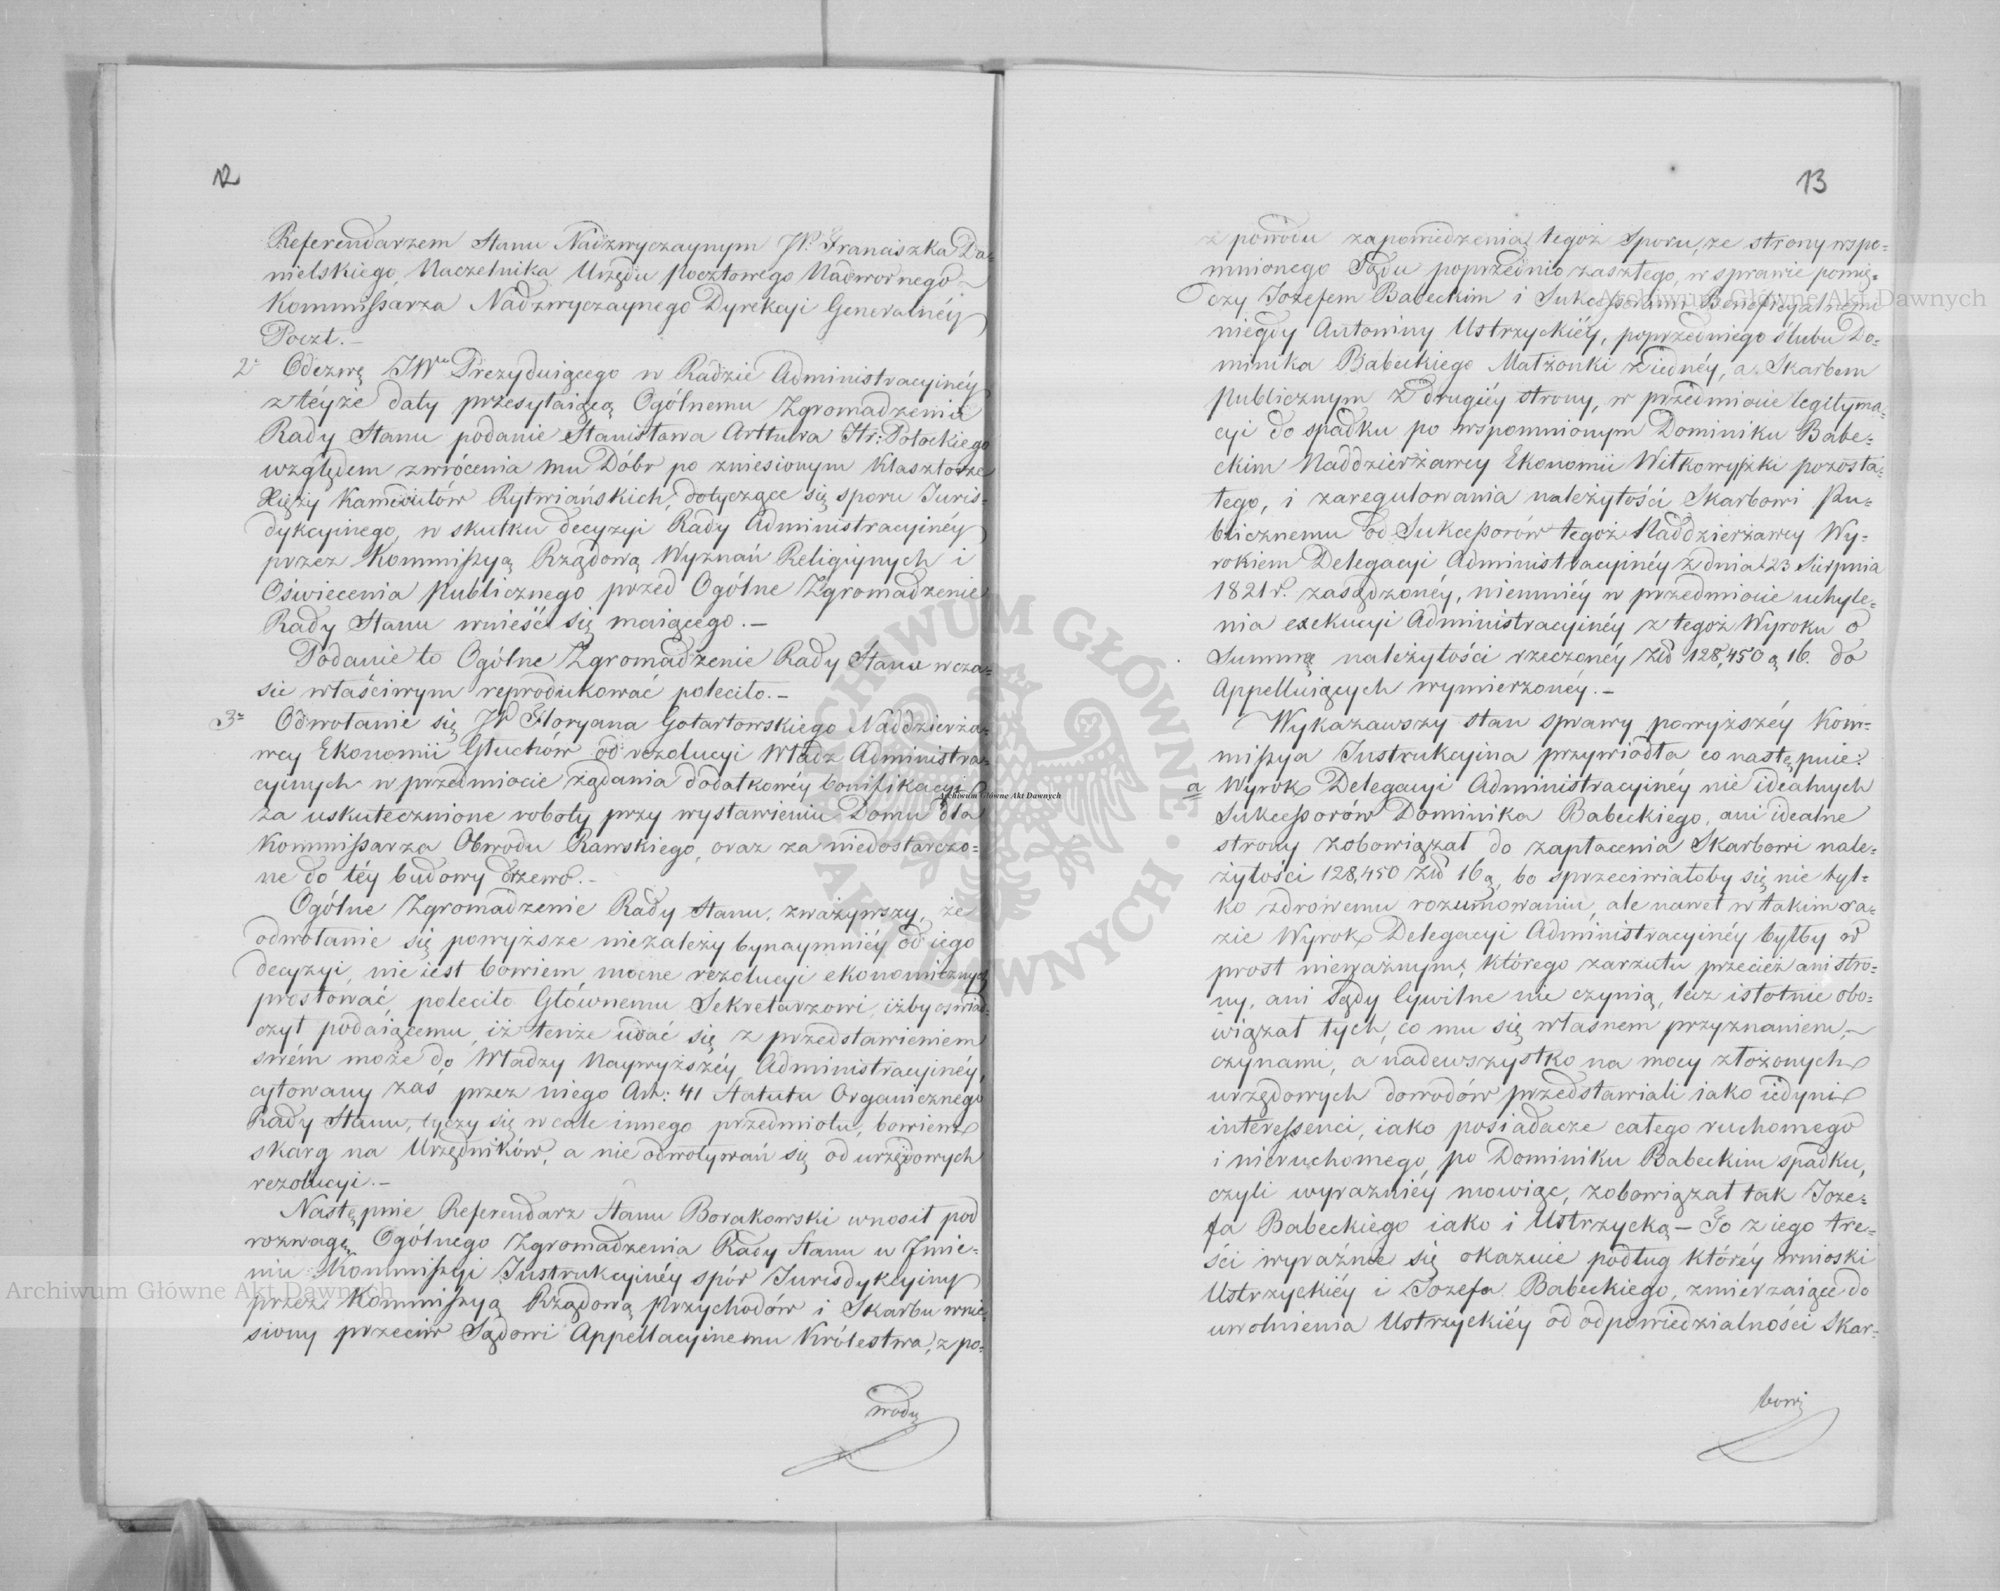 12
Referendarzem Stanu Nadzwyczaynym JP. Franciszka Da-
nielskiego, Naczelnika Urzędu Pocztowego Nadwornego
Kommissarza Nadzwyczaynego Dyrekcyi Generalnéy
Poczt.—
2° Odezwę JW Prezyduiącego w Radzie Administracyinéy
z téyże daty przesyłaiącą Ogólnemu Zgromadzeniu
Rady Stanu podanie Stanisława Arthura Hr: Potockiego
względem zwrócenia mu Dóbr po zniesionym Klasztorze
Xięży Kamedułów Rytwiańskich, dotyczące się sporu Juris-
dykcyinego, w skutku decyzyi Rady Administracyinéy
przez Kommissyą Rządową Wyznań Religiynych i
Oświecenia Publicznego przed Ogólne Zgromadzenie
Rady Stanu wnieść się maiącego.—
Podanie to Ogólne Zgromadzenie Rady Stanu w cza-
sie właściwym reprodukować poleciło.—
3° Odwołanie się JP Floryana Gotartowskiego Naddzierża-
wcy Ekonomii Głuchów od rezolucyi Władz Administra-
cyinych w przedmiocie żądania dodatkowéy bonifikacyi
za uskutecznione roboty przy wystawieniu Domu dla
Kommissarza Obwodu Rawskiego, oraz za niedostarczo-
ne do téy budowy drzewo.—
Ogólne Zgromadzenie Rady Stanu, zważywszy, że
odwołanie się powyższe niezależy bynaymniéy od iego
decyzyi, nie iest bowiem mocne rezolucyi ekonomicznych
prostować, poleciło Głównemu Sekretarzowi, iżby oświad-
czył podaiącemu, iż tenże udać się z przedstawieniem
swém może do Władzy Naywyższéy Administracyinéy,
cytowany zaś przez niego Art: 41 Statutu Organicznego
Rady Stanu, tyczy się wcale innego przedmiotu, bowiem
skarg na Urzędników, a nie odwoływań się od urzędowych
rezolucyi.—
Następnie Referendarz Stanu Borakowski wnosił pod
rozwagę Ogólnego Zgromadzenia Rady Stanu w Jmie-
niu Kommissyi Instrukcyinéy spór Jurisdykcyiny
przez Kommissyą Rządową Przychodów i Skarbu wnie-
siony przeciw Sądowi Appellacyinemu Królestwa, z po-
wodu
13
z powodu zapowiedzenia tegoż Sporu, ze strony wspo-
mnionego Sądu poprzednio zaszłego, w sprawie pomię-
dzy Jozefem Babeckim i Sukcessorami Beneficyalnemi
niegdy Antoniny Ustrzyckiéy, poprzedniego ślubu Do-
minika Babeckiego Małżonki z iednéy, a Skarbem
Publicznym z drugiéy strony, w przedmiocie legityma-
cyi do spadku po wspomnionym Dominiku Babe-
ckim Naddzierżawcy Ekonomii Witkowyski pozosta-
łego, i zaregulowania należytości Skarbowi Pu-
blicznemu od Sukcessorów tegoż Naddzierżawcy Wy-
rokiem Delegacyi Administracyinéy z dnia 23 Sierpnia
1821 r. zasądzonéy, niemniéy w przedmiocie uchyle-
nia exekucyi Administracyinéy z tegoż Wyroku o
Summę należytości rzeczonéy Złp 128,450 g 16. do
Appelluiących wymierzonéy.—
Wykazawszy stan sprawy powyższéy Kom-
missya Instrukcyina przywiodła co następuie:
a Wyrok Delegacyi Administracyinéy nie idealnych
Sukcessorów Dominika Babeckiego, ani idealne
strony zobowiązał do zapłacenia Skarbowi nale-
żytości 128,450 Złp 16 g, bo sprzeciwiałoby się nie tyl-
ko zdrowemu rozumowaniu, ale nawet w takim ra-
zie Wyrok Delegacyi Administracyinéy byłby w
prost nieważnym, którego zarzutu przecież ani stro-
ny, ani Sądy Cywilne nie czynią, lecz istotnie obo-
wiązał tych, co mu się własnem przyznaniem,
czynami, a nadewszystko na mocy złożonych
urzędowych dowodów przedstawiali iako iedyni
interessenci, iako posiadacze całego ruchomego
i nieruchomego, po Dominiku Babeckim spadku,
czyli wyraźniéy mowiąc, zobowiązał tak Joze-
fa Babeckiego iako i Ustrzycką — To z iego tre-
ści wyraźnie się okazuie podług któréy wnioski
Ustrzyckiéy i Jozefa Babeckiego, zmierzaiące do
uwolnienia Ustrzyckiéy od odpowiedzialności Skar-
bowi
Archiwum Główne Akt Dawnych
Archiwum Główne Akt Dawnych
Archiwum Główne Akt Dawnych
ARCHIWUM GŁÓWNE · AKT DAWNYCH ·